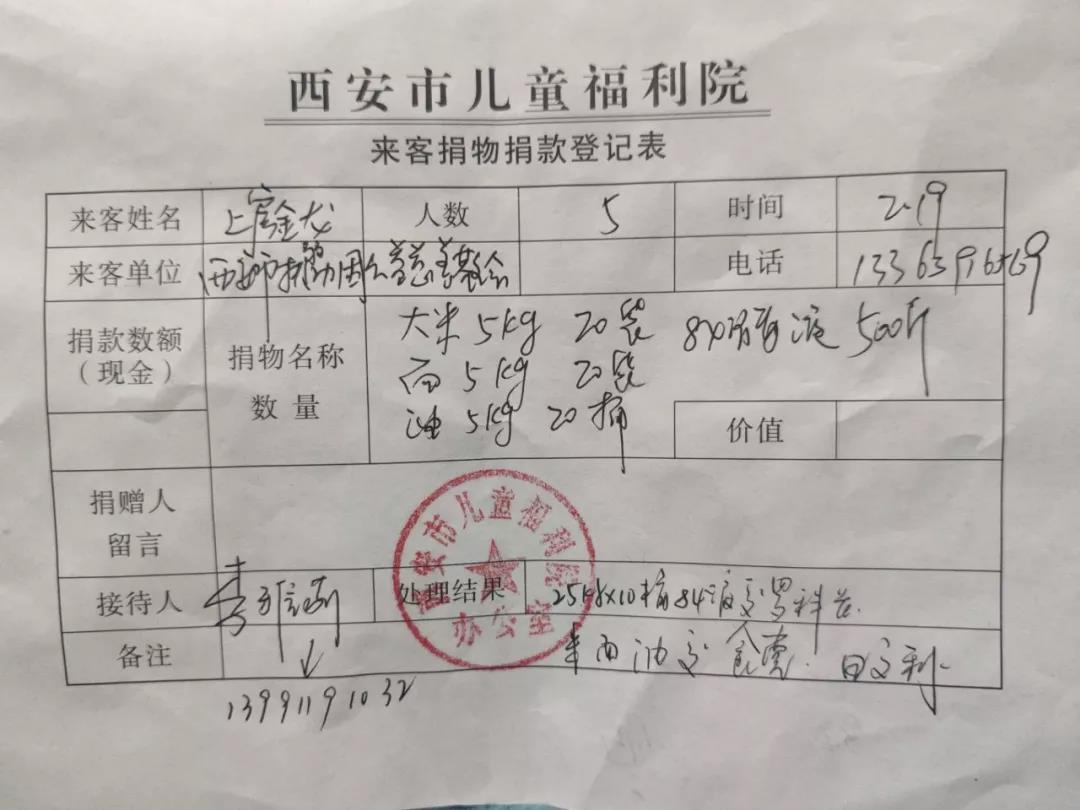 西安市儿童福利院
来客捐物捐款登记表
来客姓名 上官金龙 人数 5 时间 2.19
来客单位 电话
捐款数额
（现金）
捐物名称
数量
大米 5kg 20袋 84消毒液 500斤
面 5kg 20袋
油 5kg 20桶
价值
捐赠人
留言
接待人 处理结果
备注 米面油交食堂.
13991191032
西安市儿童福利院
办公室